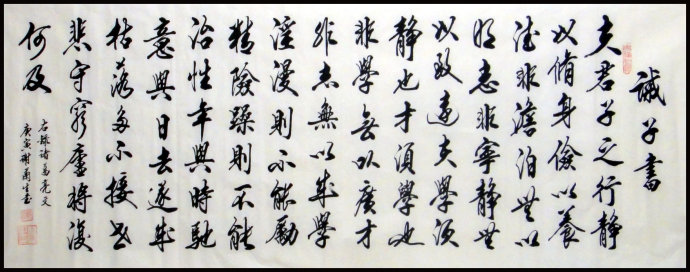 誡子書
夫君子之行靜
以脩身儉以養
德非澹泊無以
明志非寧靜無
以致遠夫學須
靜也才須學也
非學無以廣才
非志無以成學
淫漫則不能勵
精險躁則不能
治性年與時馳
意與日去遂成
枯落多不接世
悲守窮廬將復
何及
右錄諸葛亮文
庚寅謝生書